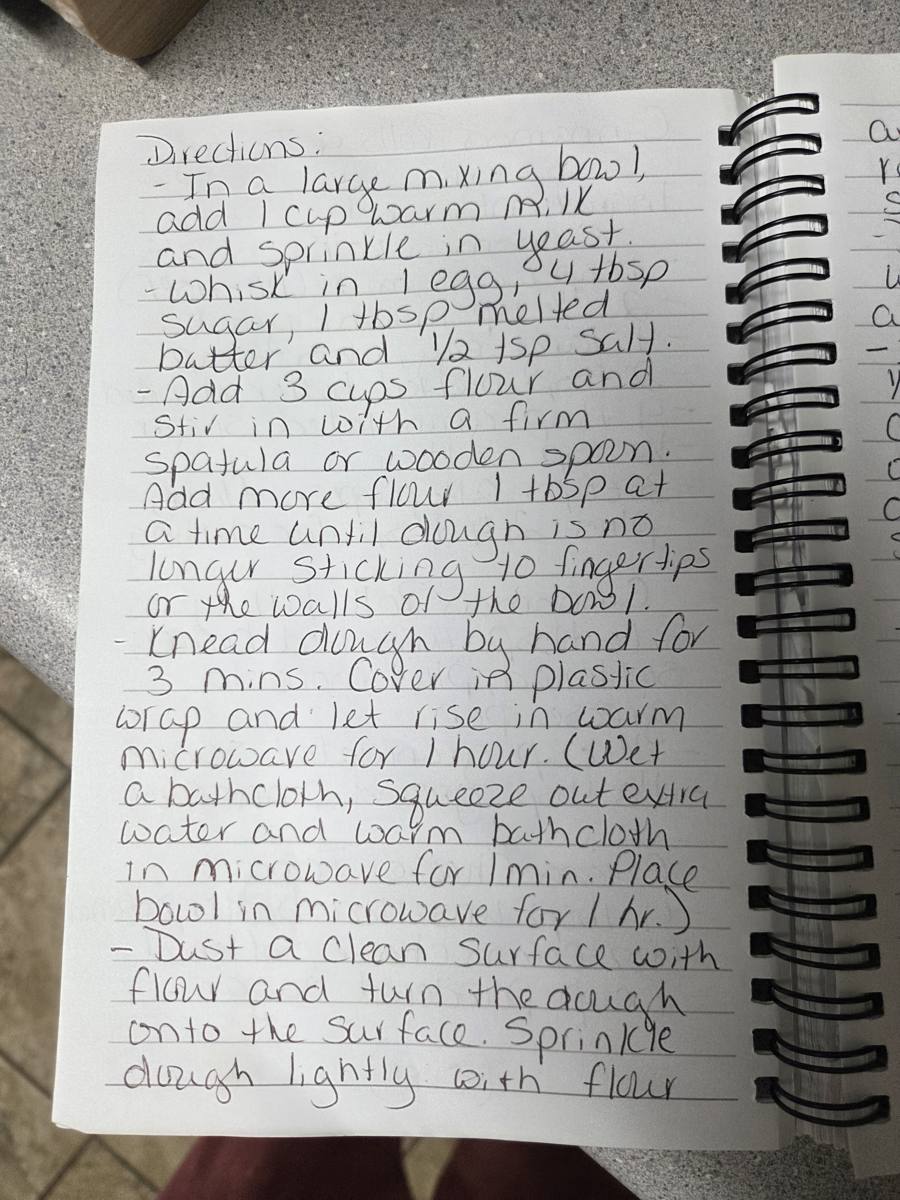 Directions:
- In a large mixing bowl,
add 1 cup warm milk
and sprinkle in yeast.
- Whisk in 1 egg, 4 tbsp
sugar, 1 tbsp melted
butter and 1/2 tsp salt.
- Add 3 cups flour and
stir in with a firm
spatula or wooden spoon.
Add more flour 1 tbsp at
a time until dough is no
longer sticking to fingertips
or the walls of the bowl.
- Knead dough by hand for
3 mins. Cover in plastic
wrap and let rise in warm
microwave for 1 hour. (Wet
a bathcloth, squeeze out extra
water and warm bathcloth
in microwave for 1 min. Place
bowl in microwave for 1 hr.)
- Dust a clean surface with
flour and turn the dough
onto the surface. Sprinkle
dough lightly with flour